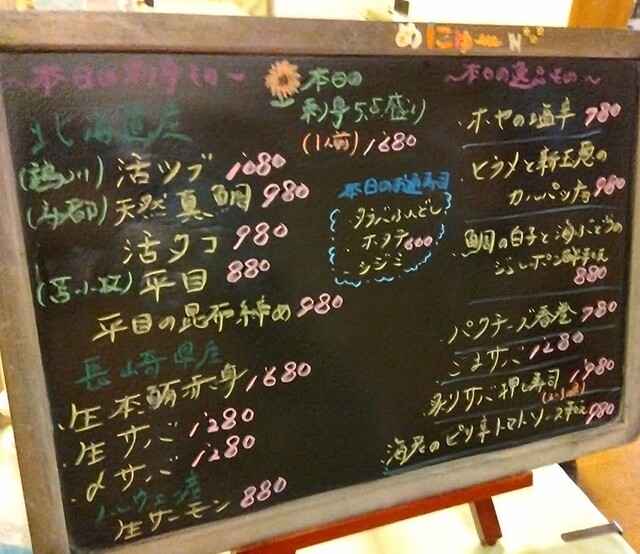 めにゅー
〜本日のお刺身もの〜
北海道産
(鵡川) 活ツブ 1080
天然真鯛 980
活タコ 980
(苫小牧) 平目 880
平目の昆布締め 980
長崎県産
生本鮪赤身 1680
生サバ 1280
〆サバ 1280
ノルウェー産
生サーモン 880
本日の
刺身5点盛り
(1人前) 1680
本日のお通し
タラバふんどし
ホタテ 600
シジミ
〜本日の逸品もの〜
ホヤの塩辛 780
ヒラメと新玉ねぎの
カルパッチョ 980
鯛の白子と海ぶどうの
ジュレポン酢和え
880
パクチーズ春巻 780
ごまサバ 1280
炙りサバ押し寿司 1980
海老のピリ辛トマトソース和え 980